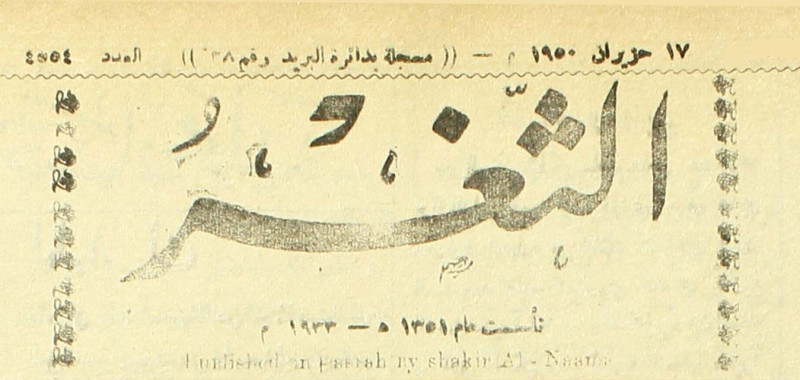 ١٧ حزيران ١٩٥٠ م — (( مسجلة بدائرة البريد رقم ٣٨ )) العدد ٤٥٥٤
الثَّغْرُ
تأسست عام ١٣٥١ ه — ١٩٣٣ م
Published in Basrah by shakir Al-Naama